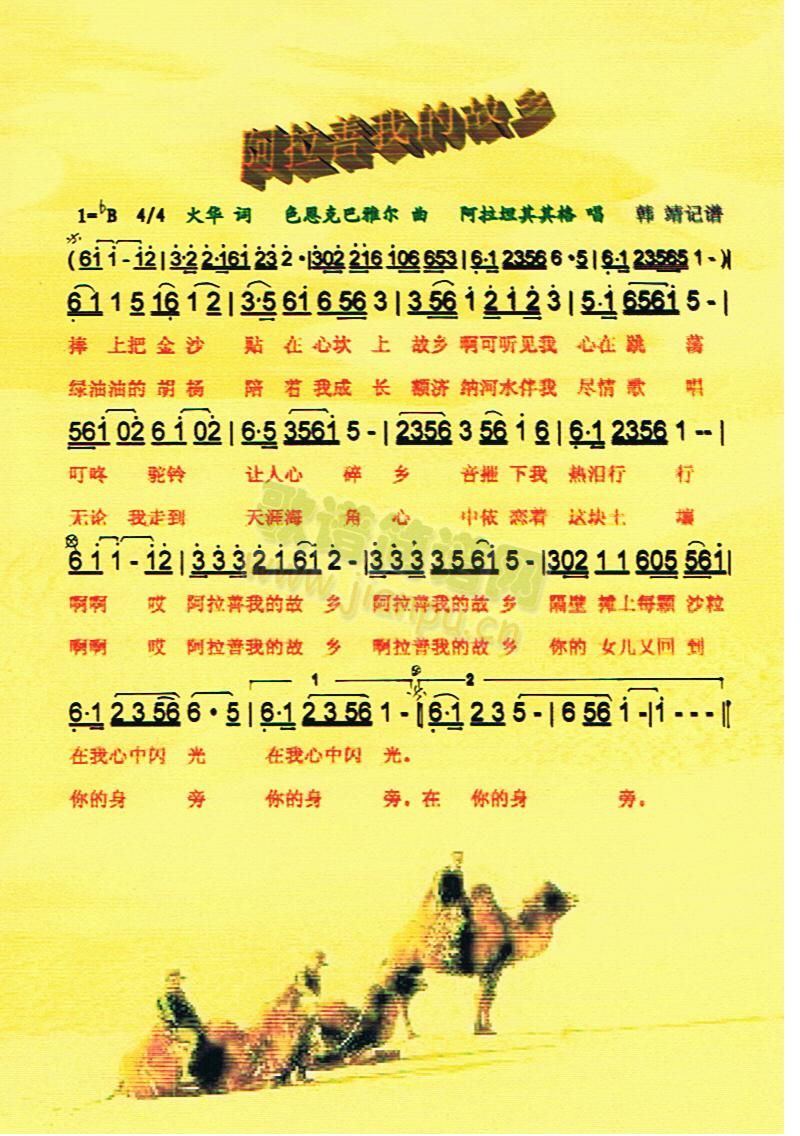 阿拉善我的故乡
1=♭B 4/4 火华 词 色恩克巴雅尔 曲 阿拉坦其其格 唱 韩 靖记谱
(6i i - i2 | 3·2 2·161 23 2· | 302 216 106 653 | 6·1 2356 6·5 | 6·1 23565 1 - )
6 1 1 5 16 1 2 | 3·5 61 6 56 3 | 3 56 1 2 1 2 3 | 5·1 6561 5 - |
捧 上把 金 沙 贴 在 心坎 上 故乡 啊可听见我 心在 跳 荡
绿油油的 胡 杨 陪 着 我成 长 额济 纳河水伴我 尽情 歌 唱
561 02 6 1 02 | 6·5 3561 5 - | 2356 3 56 1 6 | 6·1 2356 1 -- |
叮咚 驼铃 让人心 碎 乡 音摧 下我 热泪行 行
无论 我走到 天涯海 角 心 中依 恋着 这块土 壤
6 1 1 - 12 | 3 3 3 2 1 61 2 - | 3 3 3 3 5 61 5 - | 302 1 1 605 561 |
啊啊 哎 阿拉善我的故 乡 阿拉善我的故 乡 隔壁 滩上每颗 沙粒
啊啊 哎 阿拉善我的故 乡 啊拉善我的故 乡 你的 女儿又回 到
1 2
6·1 2 3 56 6·5 | 6·1 2 3 56 1 - 6·1 2 3 5 - | 6 56 1 - | 1 - - -
在我心中闪 光 在我心中闪 光。
你的身 旁 你的身 旁。在 你的身 旁。
歌谱简谱网
www.jianpu.cn